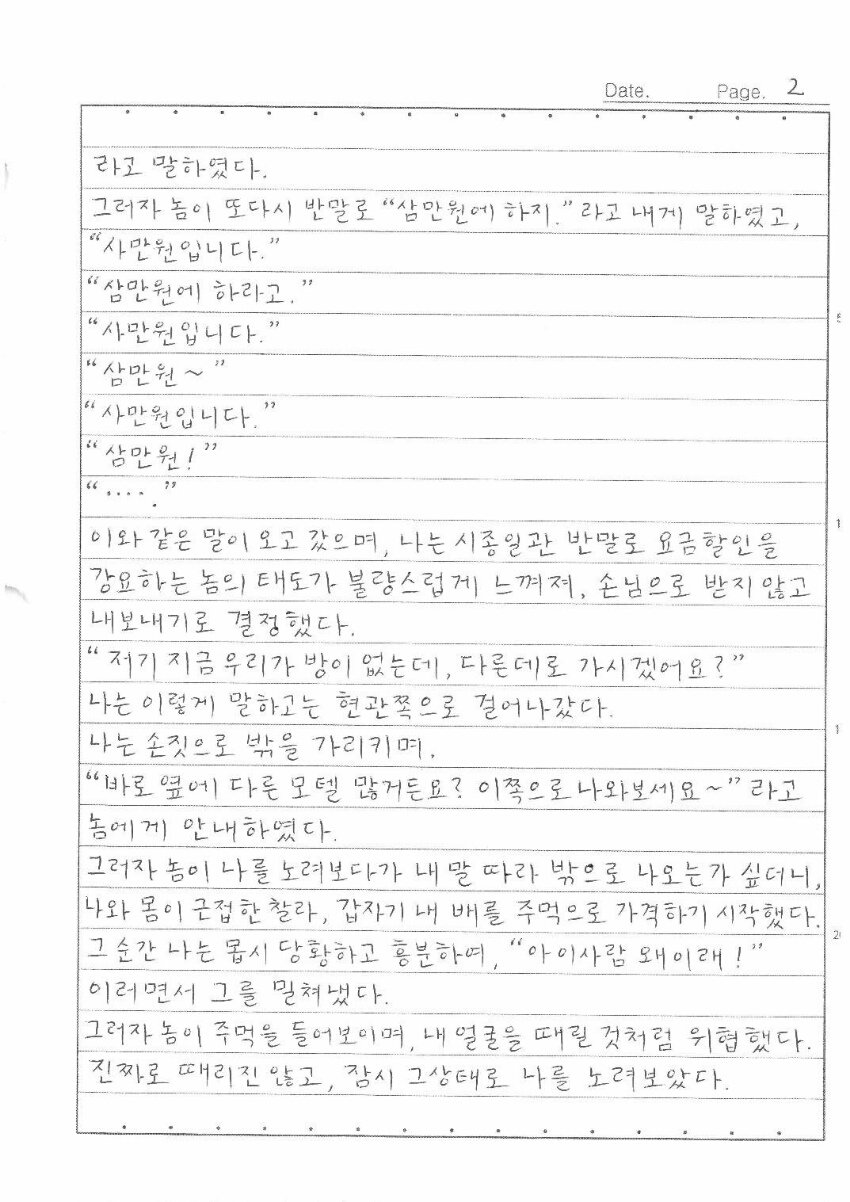 Date. Page. 2
라고 말하였다.
그러자 놈이 또다시 반말로 “삼만원에 하지.” 라고 내게 말하였고,
“사만원입니다.”
“삼만원에 하라고.”
“사만원입니다.”
“삼만원~”
“사만원입니다.”
“삼만원!”
“·····.”
이와 같은 말이 오고 갔으며, 나는 시종일관 반말로 요금할인을
강요하는 놈의 태도가 불량스럽게 느껴져, 손님으로 받지 않고
내보내기로 결정했다.
“저기 지금 우리가 방이 없는데, 다른데로 가시겠어요?”
나는 이렇게 말하고는 현관쪽으로 걸어나갔다.
나는 손짓으로 밖을 가리키며,
“바로 옆에 다른 모텔 많거든요? 이쪽으로 나와보세요~” 라고
놈에게 안내하였다.
그러자 놈이 나를 노려보다가 내 말 따라 밖으로 나오는가 싶더니,
나와 몸이 근접한 찰라, 갑자기 내 배를 주먹으로 가격하기 시작했다.
그 순간 나는 몹시 당황하고 흥분하여, “아이사람 왜이래!”
이러면서 그를 밀쳐냈다.
그러자 놈이 주먹을 들어보이며, 내 얼굴을 때릴 것처럼 위협했다.
진짜로 때리진 않고, 잠시 그상태로 나를 노려보았다.